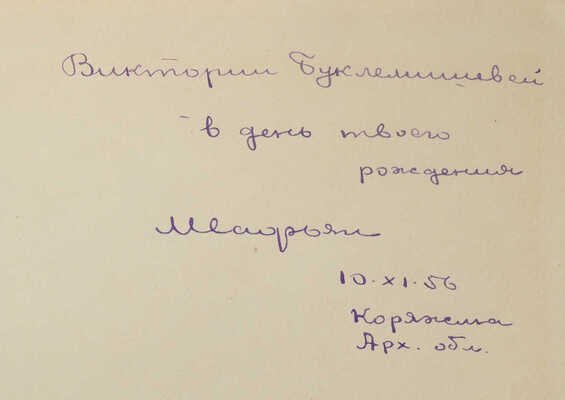 Виктории Буклемишевей
в день твоего
рождения
10.XI.56
Коряжма
Арх. обл.